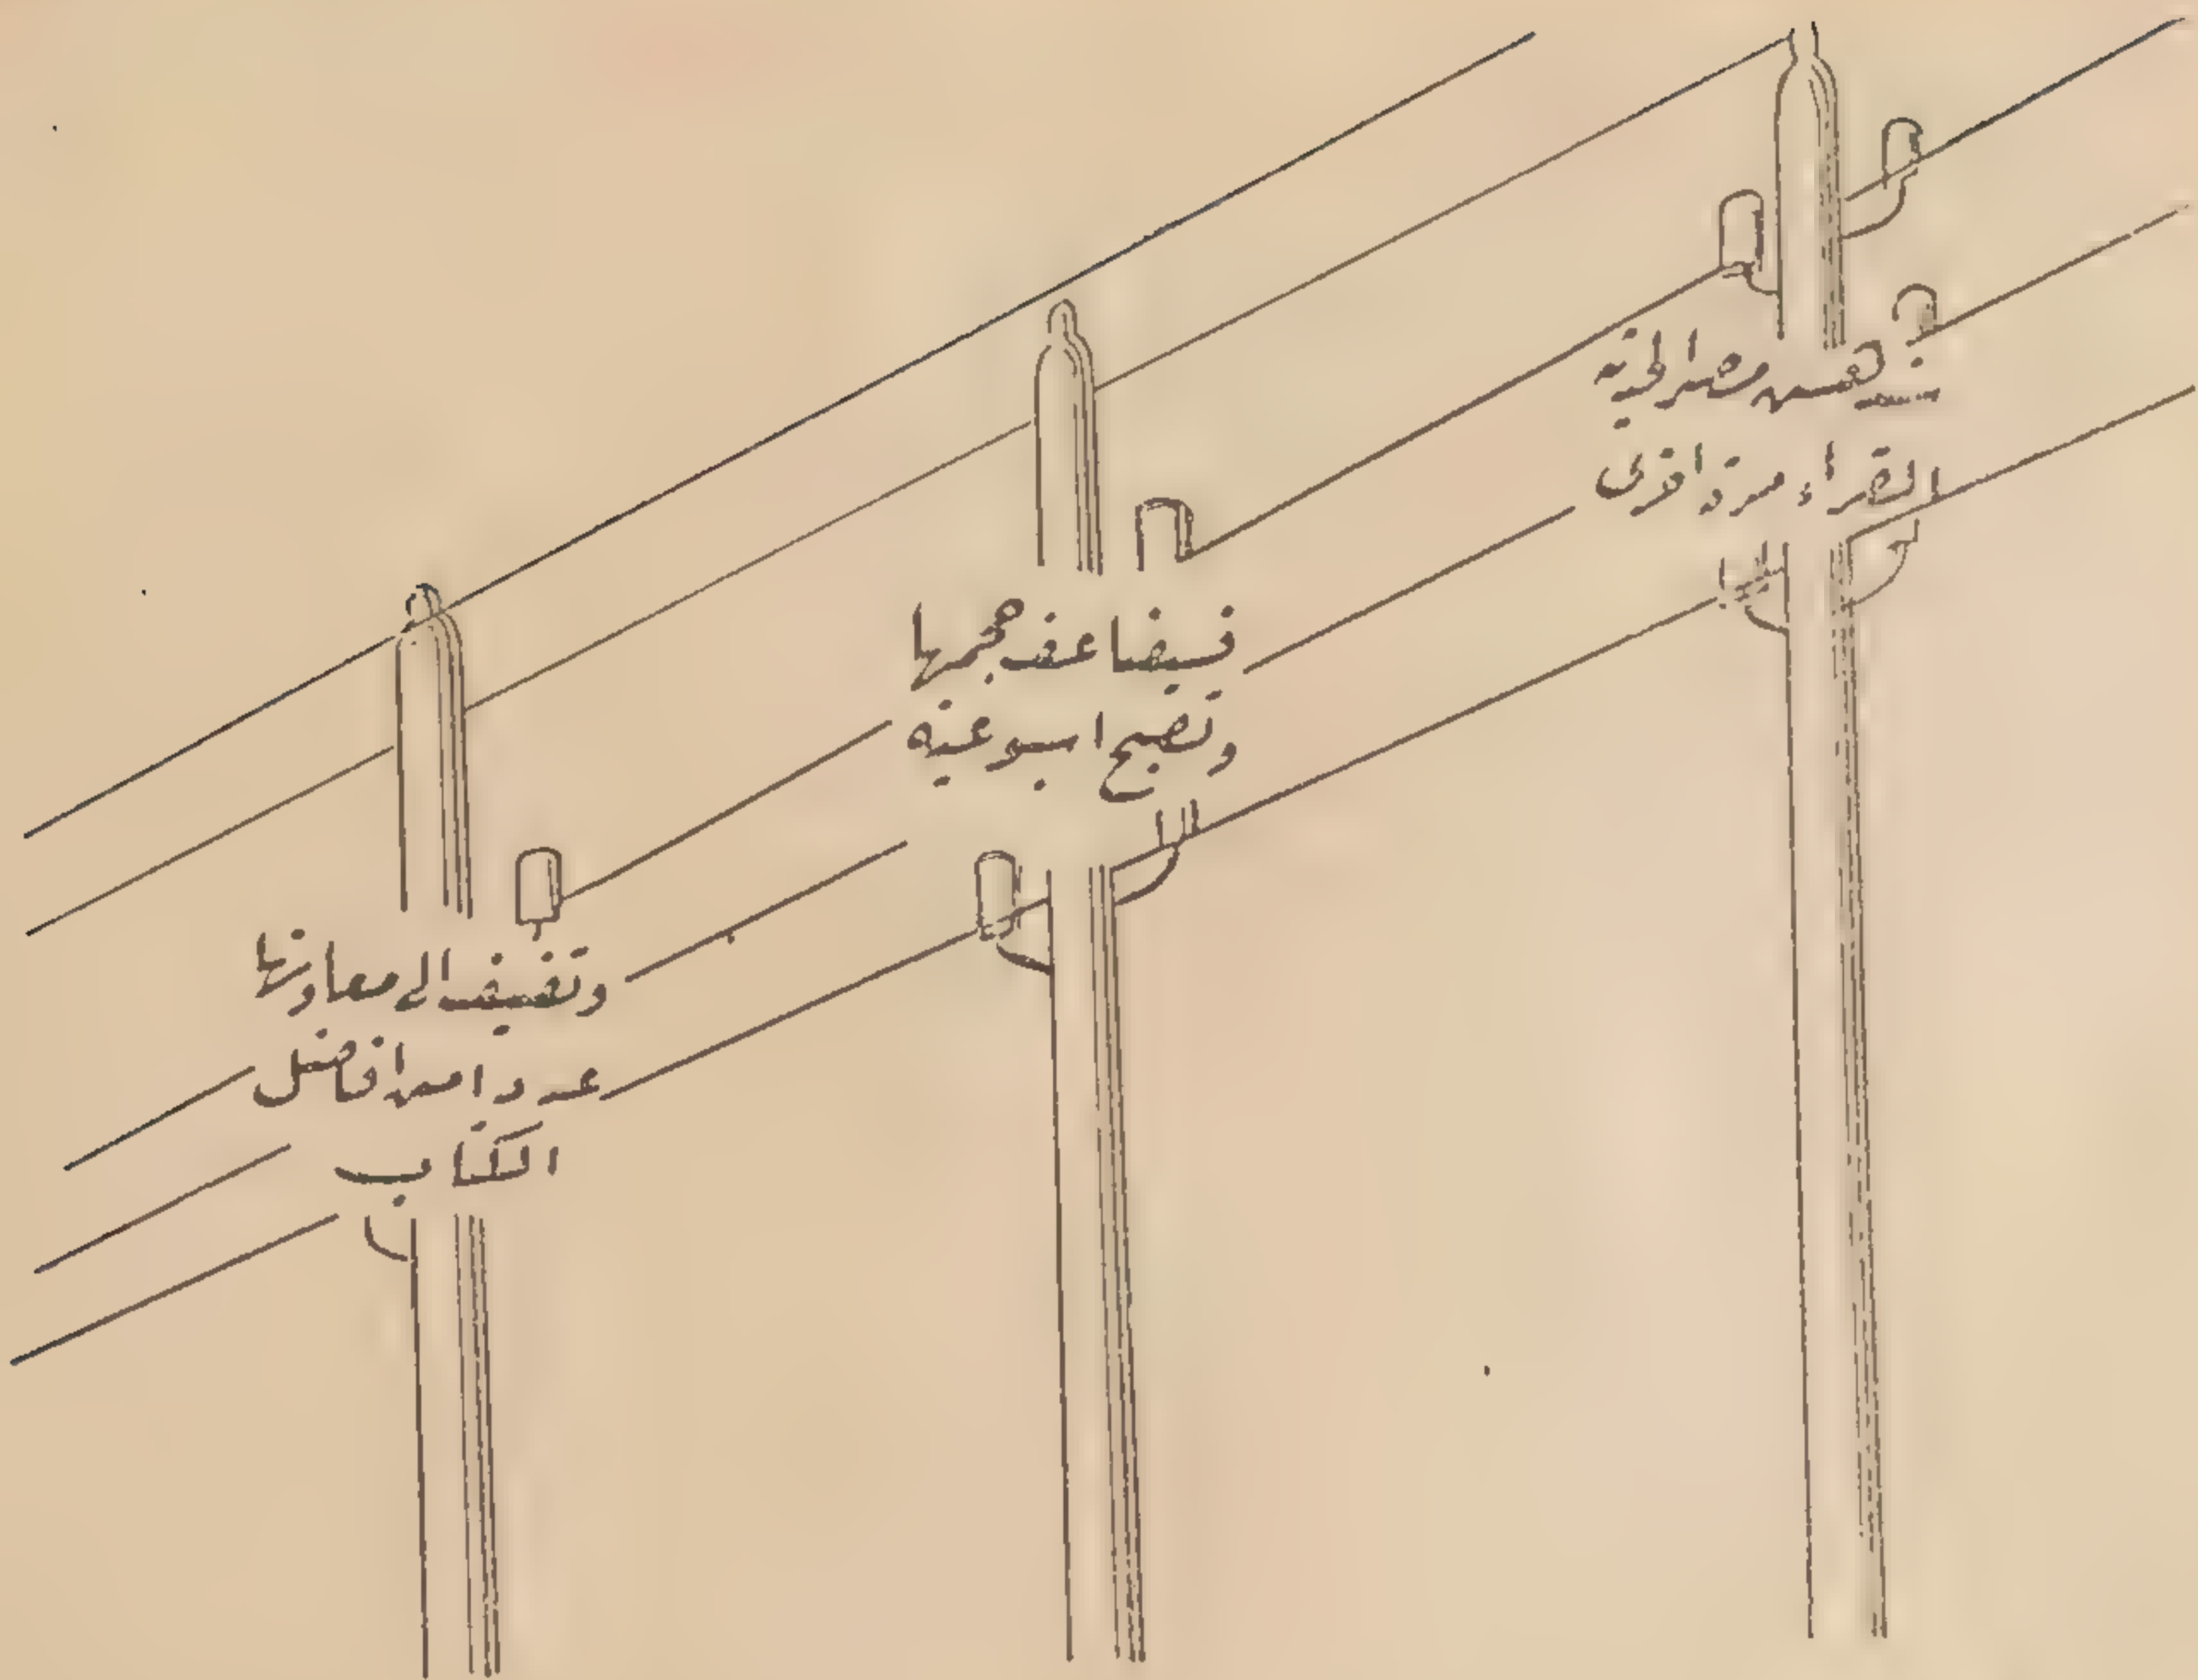 ستدهس مصر الحديثة
القراء مرة اخرى
فسيضاعف حجمها
وتصبح اسبوعية
وتضيف الى معاونيها
عددا من افاضل
الكتاب